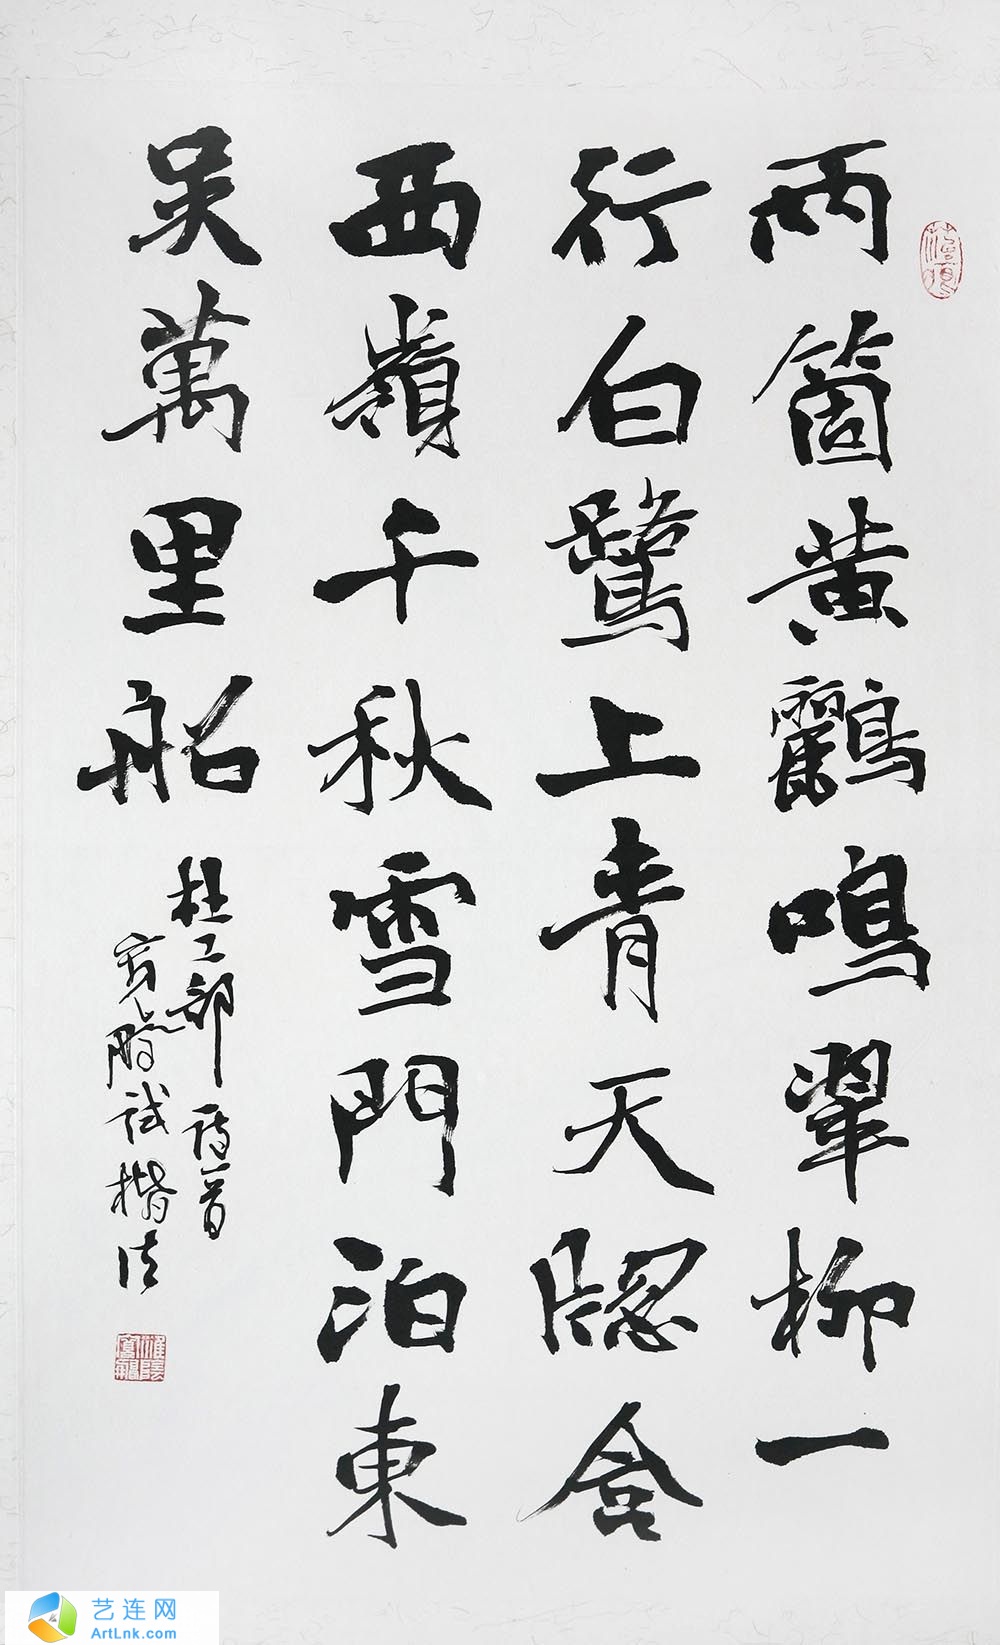 兩箇黄鸝鳴翠柳一
行白鷺上青天牕含
西嶺千秋雪門泊東
吴萬里船
杜工部詩首
試楷法
艺连网
ArtLnk.com